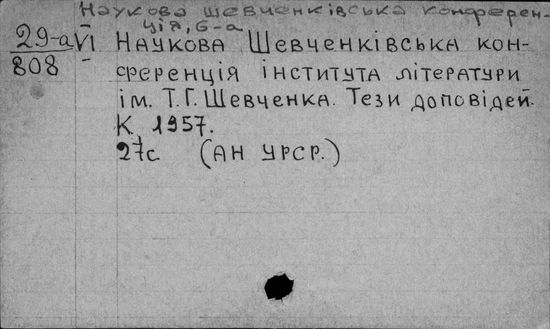 Наукова шевченківська конферен-
ція, 6-а
29-а VI Наукова Шевченківська кон-
808 ференція інститута літератури
ім. Т.Г. Шевченка. Тези доповідей.
К. 1957.
27с (АН УРСР.)